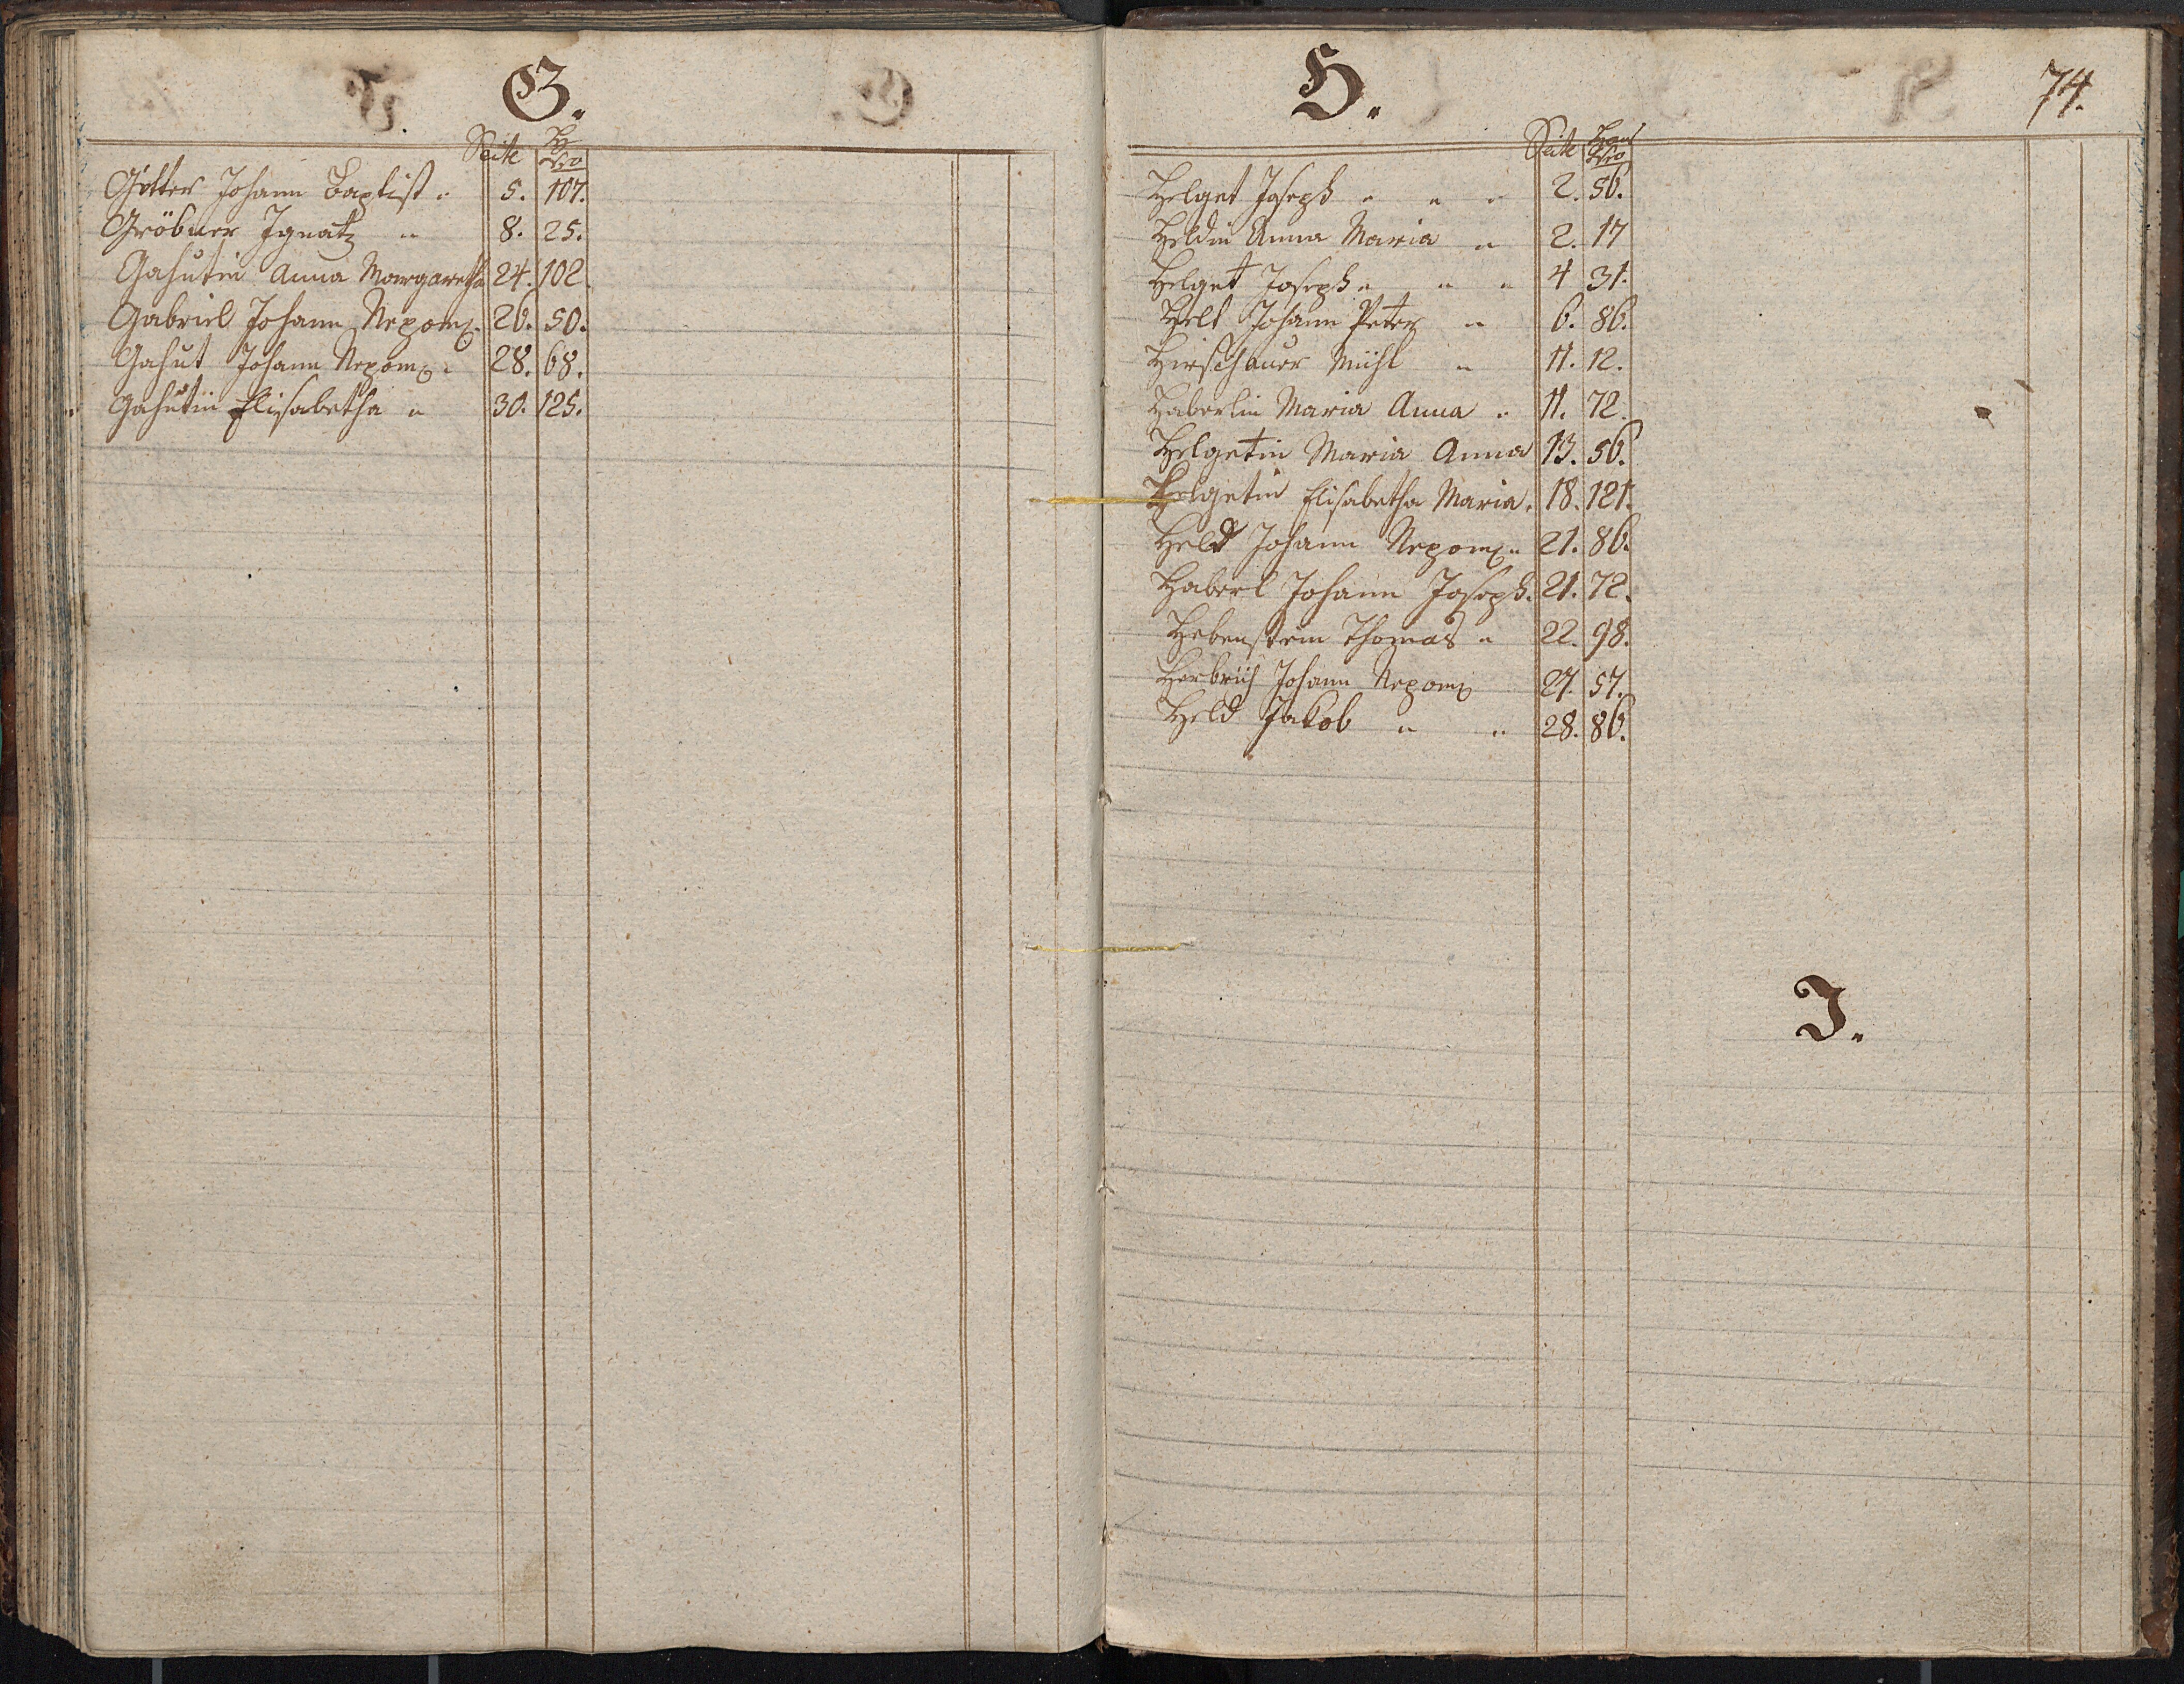 G.
Seite H Nro
Götter Johann Baptist „ 5. 107.
Gröbner Ignatz „ 8. 25.
Gahutin Anna Margaretha 24. 102.
Gabriel Johann Nepom. 26. 50.
Gahut Johann Nepom. „ 28. 68.
Gahutin Elisabetha „ 30. 125.
H. 74.
Seite Haus Nro
Helget Joseph „ „ „ 2. 56.
Heldin Anna Maria „ 2. 17
Helget Joseph „ „ „ 4 31.
Helt Johann Peter „ 6. 86.
Hirschauer Mühl „ 11. 12.
Haberlin Maria Anna „ 11. 72.
Helgetin Maria Anna 13. 56.
Helgetin Elisabetha Maria. 18. 121.
Held Johann Nepom. „ 21. 86.
Haberl Johann Joseph. 21. 72.
Hebenstrein Thomas „ 22. 98.
Herbrich Johann Nepom 27. 57.
Held Jakob „ „ 28. 86.
I.